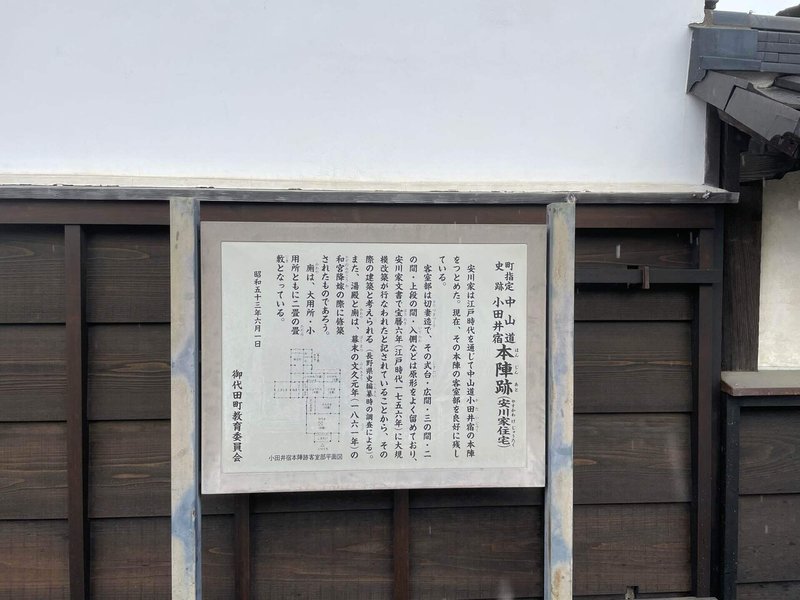 町指定
史跡
中山道
小田井宿
本陣跡
(安川家住宅)
安川家は江戸時代を通じて中山道小田井宿の本陣
をつとめた。現在、その本陣の客室部を良好に残し
ている。
客室部は切妻造で、その式台・広間・三の間・二
の間・上段の間・入側などは原形をよく留めており、
安川家文書で宝暦六年(江戸時代一七五六年)に大規
模改築が行なわれたと記されていることから、その
際の建築と考えられる(長野県史編纂時の調査による)。
また、湯殿と厠は、幕末の文久元年(一八六一年)の
和宮降嫁の際に修築
されたものであろう。
厠は、大用所・小
用所ともに二畳の畳
敷となっている。
小田井宿本陣跡客室部平面図
昭和五十三年六月一日
御代田町教育委員会